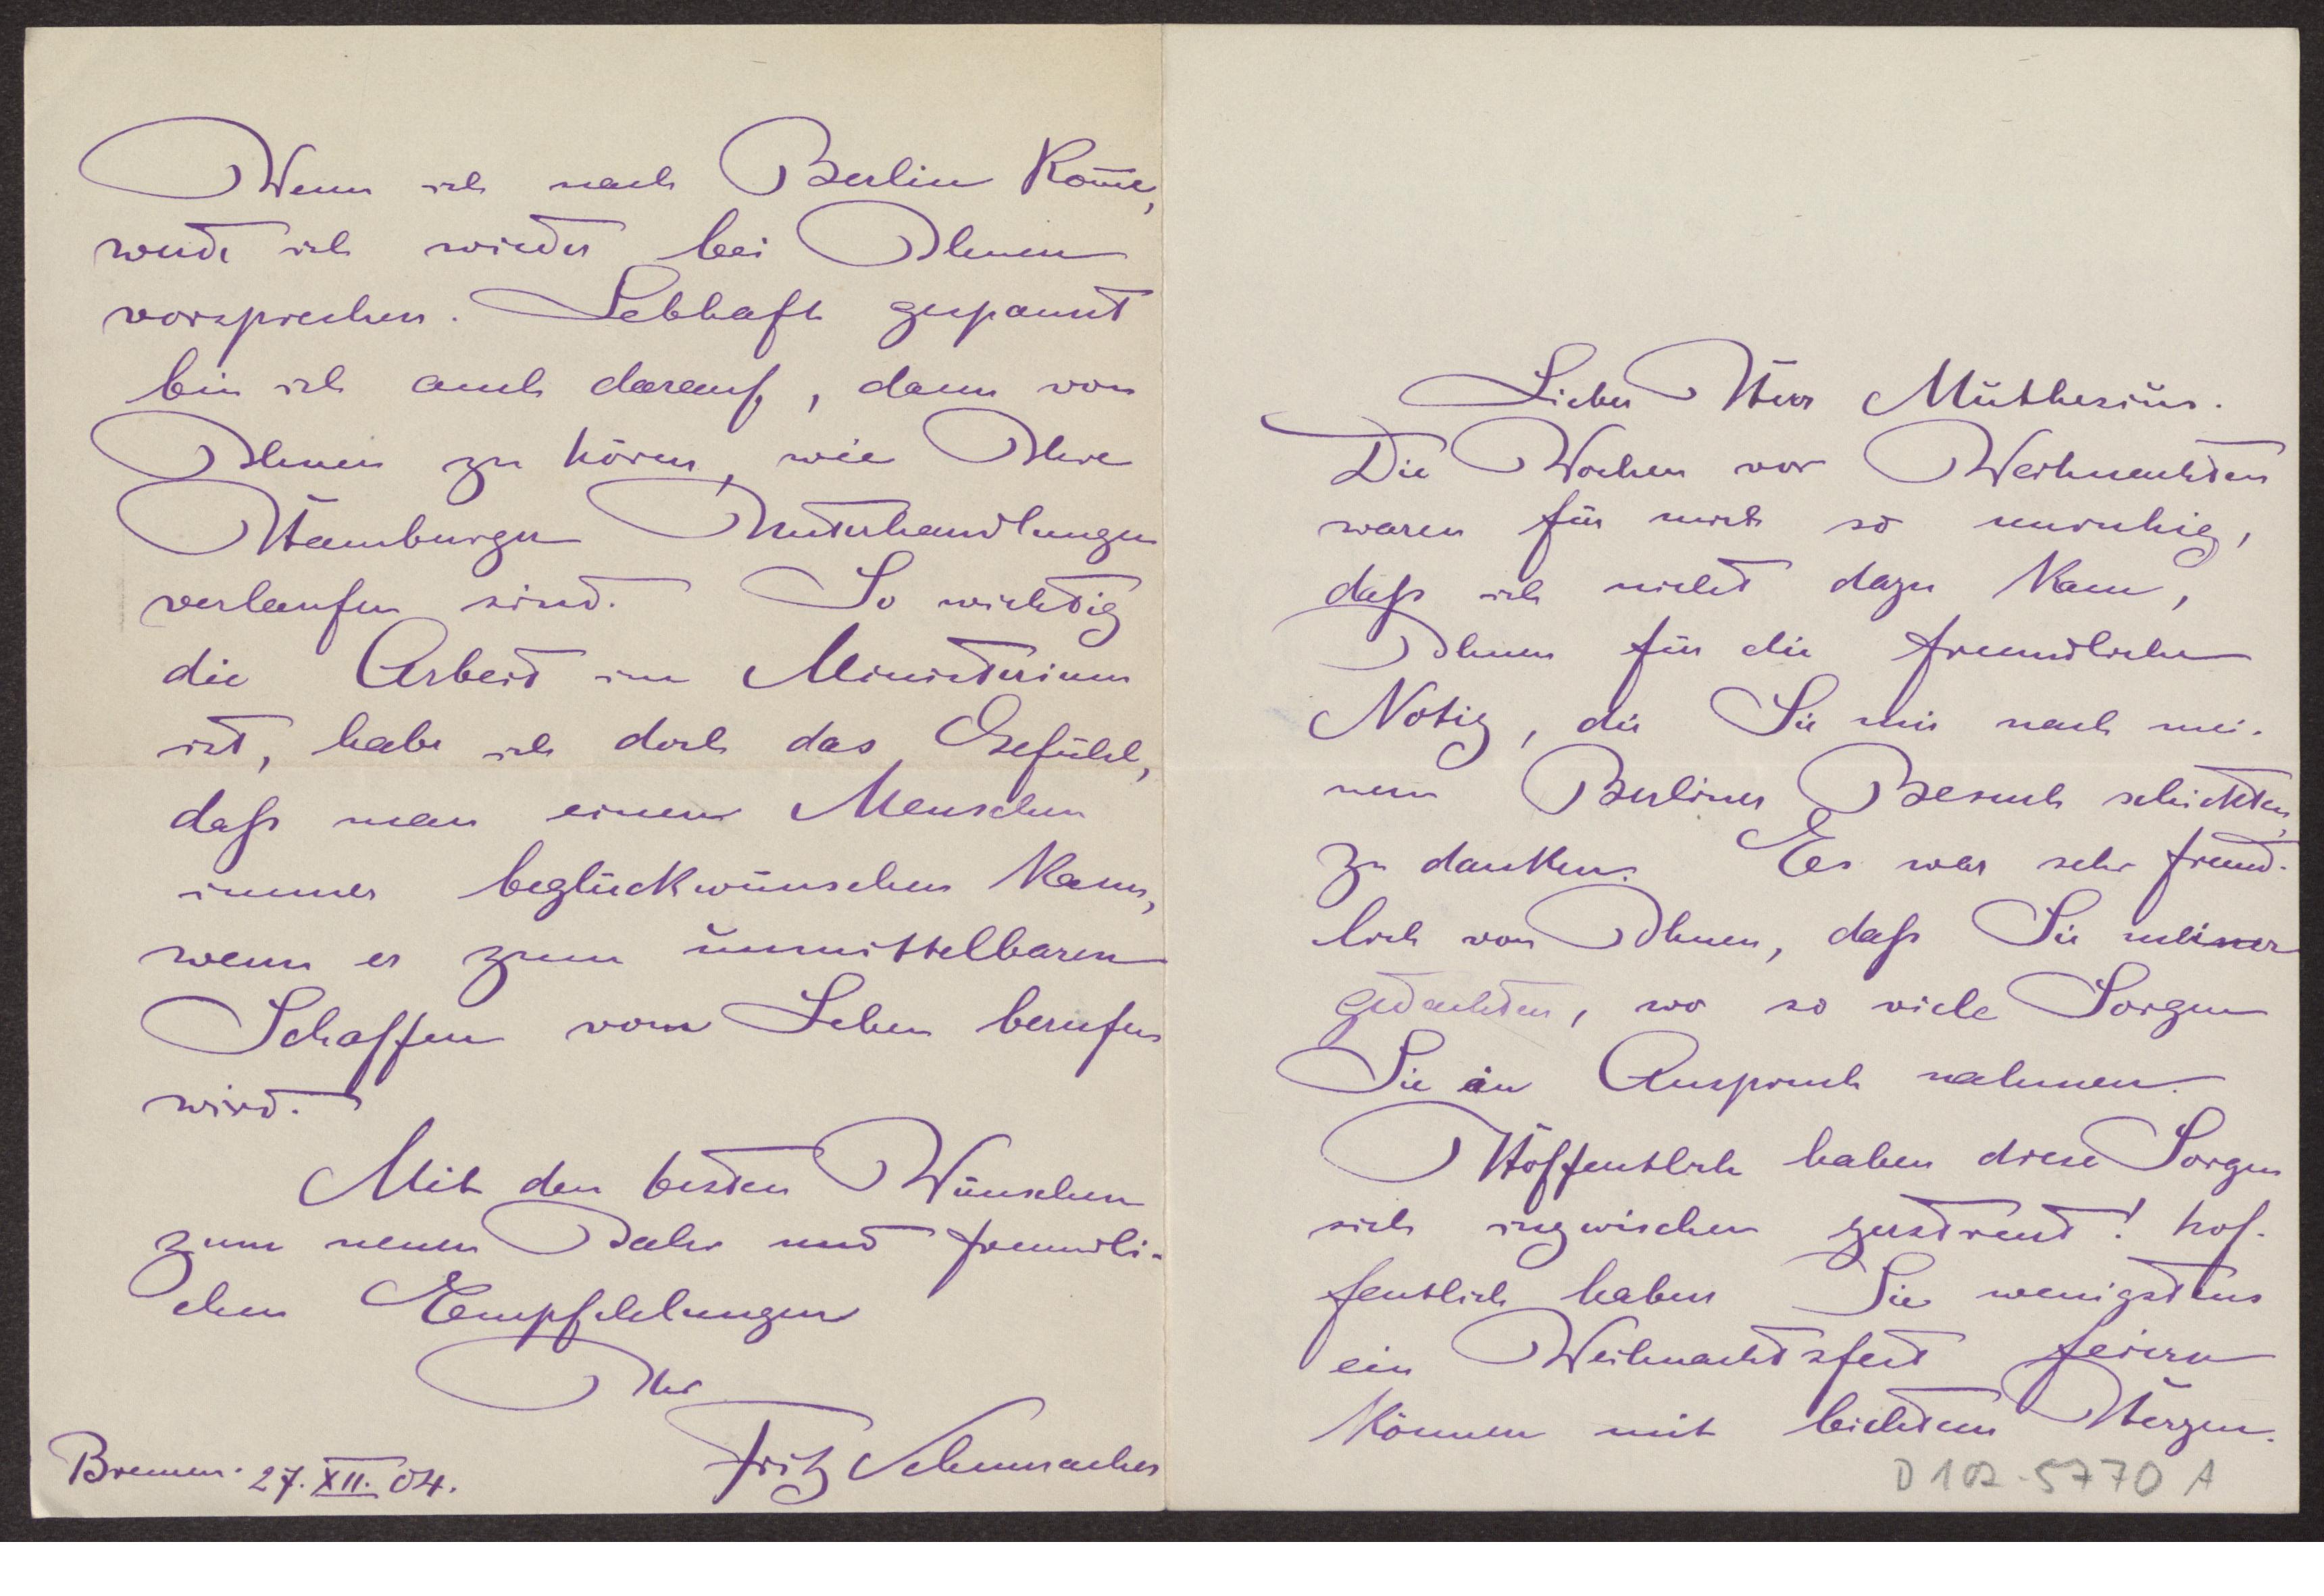 Lieber Herr Muthesius.
Die Wochen vor Weihnachten
waren für mich so unruhig,
daß ich nicht dazu kam,
Ihnen für die freundliche
Notiz, die Sie mir nach mei-
nem Berliner Besuch schickten,
zu danken. Es war sehr freund-
lich von Ihnen, daß Sie meiner
gedachten, wo so viele Sorgen
Sie in Anspruch nahmen.
Hoffentlich haben diese Sorgen
sich inzwischen zerstreut! hof-
fentlich haben Sie wenigstens
ein Weihnachtsfest feiern
können mit leichtem Herzen.
D 102-5770 A
Wenn ich nach Berlin kom̄e,
werde ich wieder bei Ihnen
vorsprechen. Lebhaft gespannt
bin ich auch darauf, dann von
Ihnen zu hören, wie Ihre
Hamburger Unterhandlungen
verlaufen sind. So wichtig
die Arbeit im Ministerium
ist, habe ich doch das Gefühl,
daß man einem Menschen
immer beglückwünschen kann,
wenn er zum unmittelbaren
Schaffen vom Leben berufen
wird.
Mit den besten Wünschen
zum neuen Jahr und freundli-
chen Empfehlungen
Ihr
Fritz Schumacher
Bremen. 27. XII. 04.